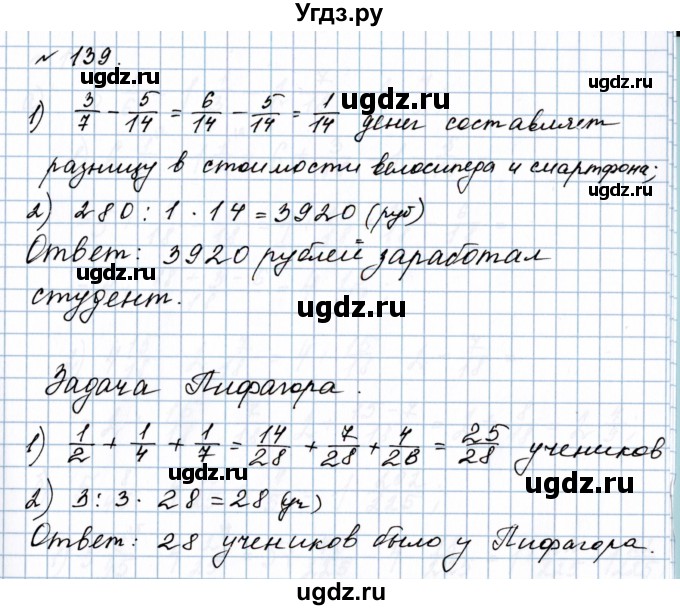 Угдз.ру
№ 139.
ugdz.ru
ugdz.ru
1) 3/7 - 5/14 = 6/14 - 5/14 = 1/14 денег составляет
разницу в стоимости велосипеда и смартфона;
ugdz.ru
2) 280 : 1 · 14 = 3920 (руб)
Ответ: 3920 рублей заработал
ugdz.ru
ugdz.ru
студент.
ugdz.ru
Задача Пифагора.
1) 1/2 + 1/4 + 1/7 = 14/28 + 7/28 + 4/28 = 25/28 учеников
ugdz.ru
ugdz.ru
2) 3 : 3 · 28 = 28 (уч)
Ответ: 28 учеников было у Пифагора.
ugdz.ru